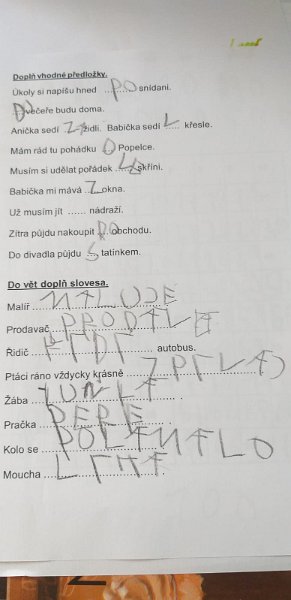 Doplň vhodné předložky.
Úkoly si napíšu hned ..PO.. snídani.
DO večeře budu doma.
Anička sedí Z židli. Babička sedí L křesle.
Mám rád tu pohádku O Popelce.
Musím si udělat pořádek skříni.
Babička mi mává Z okna.
Už musím jít ...... nádraží.
Zítra půjdu nakoupit DO obchodu.
Do divadla půjdu S tatínkem.
Do vět doplň slovesa.
Malíř MALUJE
Prodavač
Řidič autobus.
Ptáci ráno vždycky krásně
Žába
Pračka PERE
Kolo se POLAMALO
Moucha